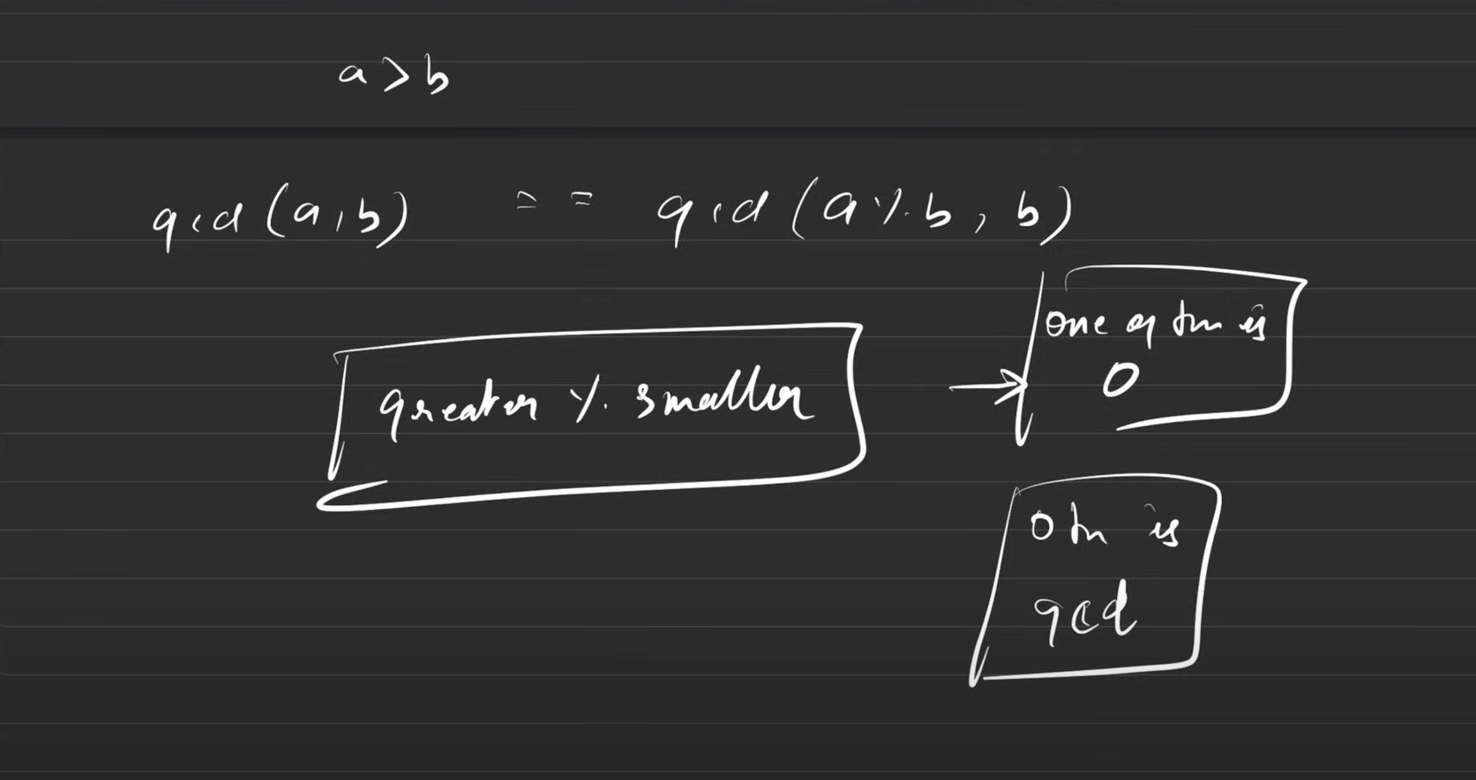 a > b
gcd (a, b) == gcd (a % b, b)
greater % smaller
one of them is
0
other is
gcd